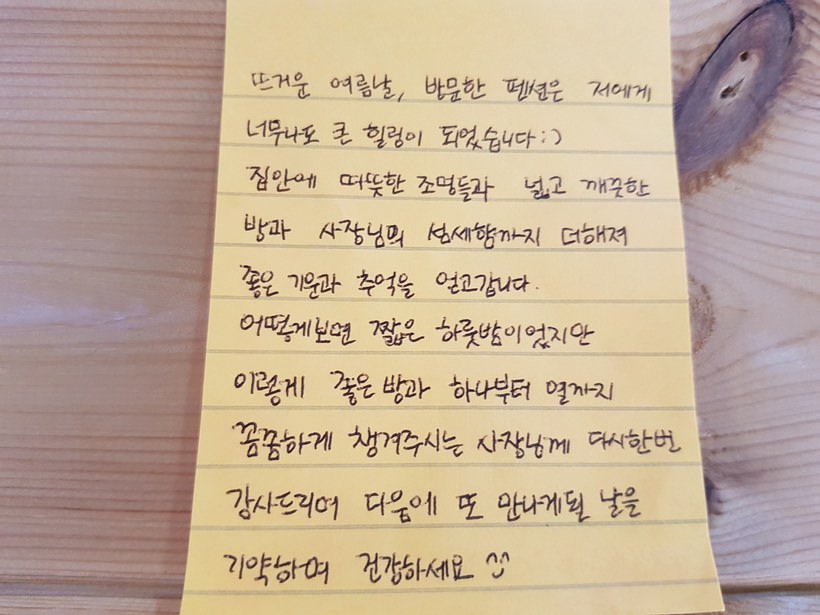 뜨거운 여름날, 방문한 펜션은 저에게
너무나도 큰 힐링이 되었습니다 :)
집안에 따뜻한 조명들과 넓고 깨끗한
방과 사장님의 섬세함까지 더해져
좋은 기운과 추억을 얻고갑니다.
어떻게보면 짧은 하룻밤이었지만
이렇게 좋은 방과 하나부터 열까지
꼼꼼하게 챙겨주시는 사장님께 다시한번
감사드리며 다음에 또 만나게될 날을
기약하며 건강하세요 ^^